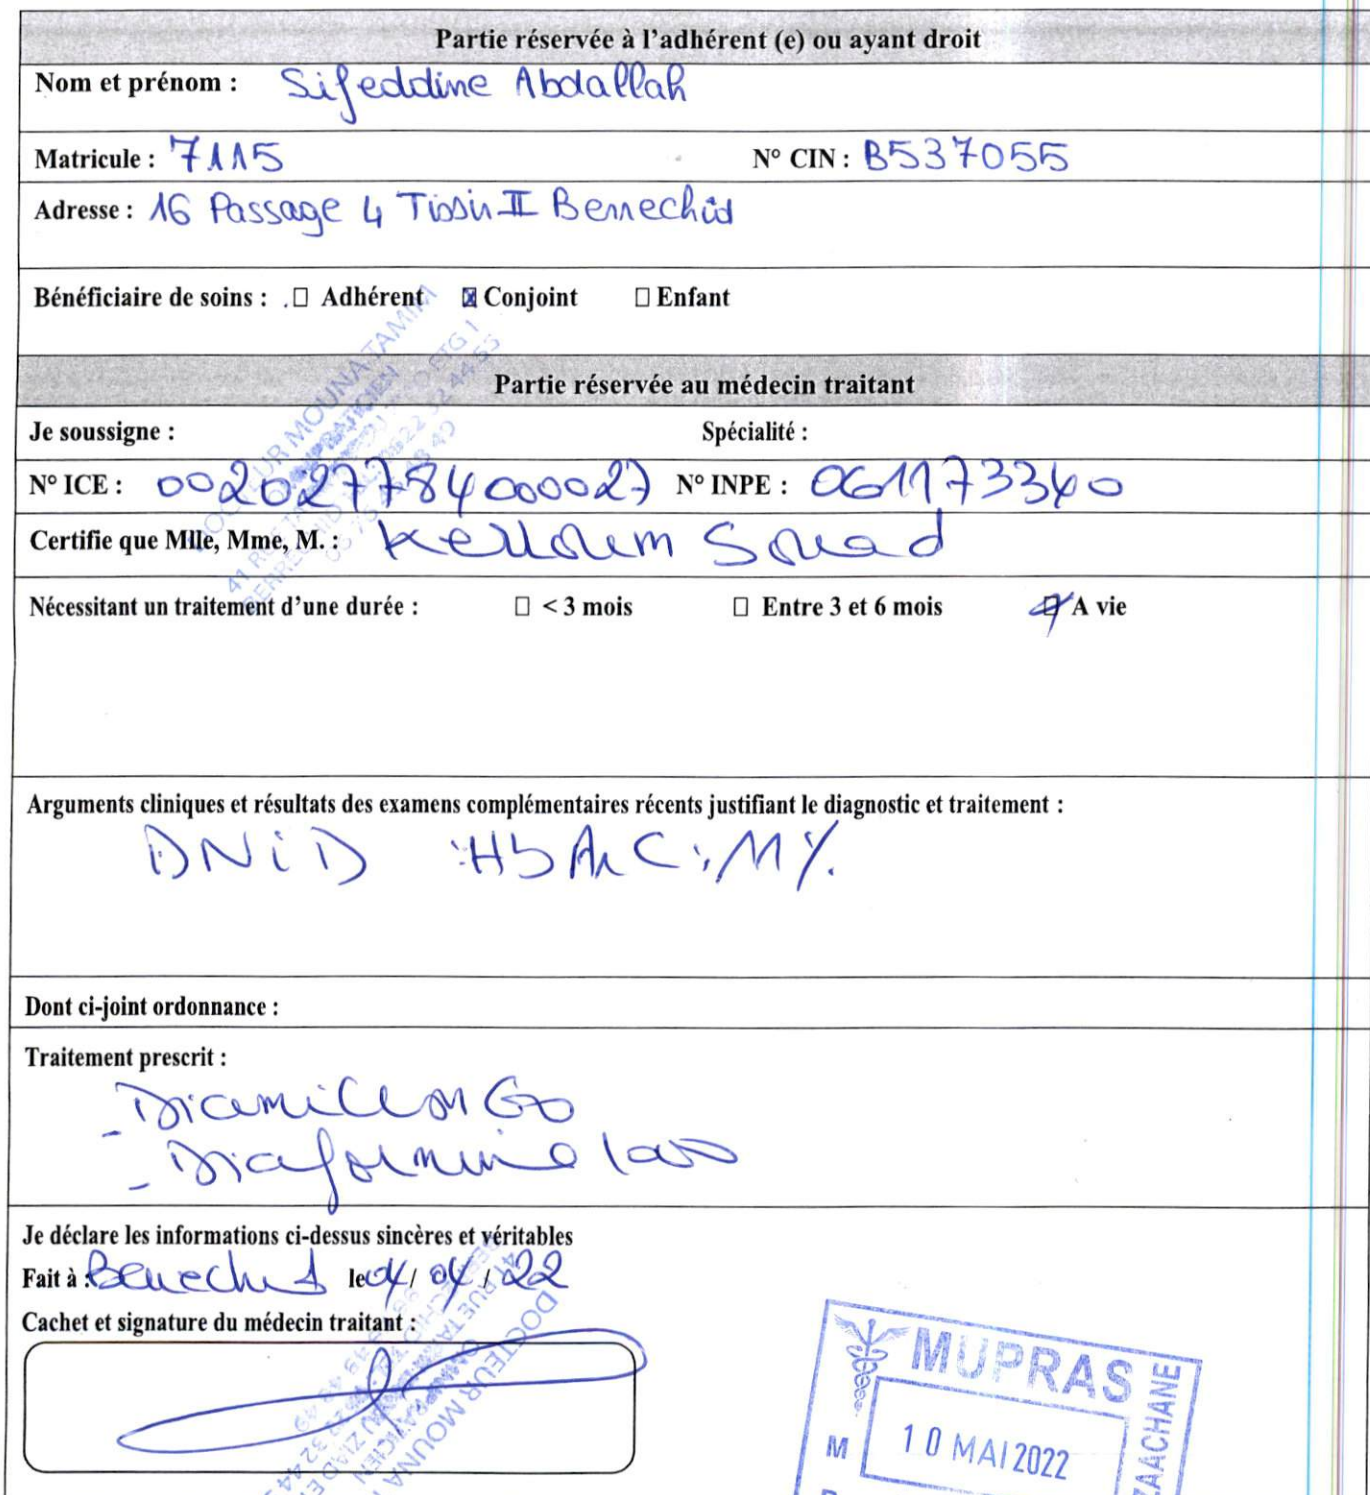 Partie réservée à l'adhérent (e) ou ayant droit
Nom et prénom : Sifeddine Abdallah
Matricule : 7115 N° CIN : B537055
Adresse : 16 Passage 4 Tissir II Berrechid
Bénéficiaire de soins : . ☐ Adhérent ☒ Conjoint ☐ Enfant
DOCTEUR MOUNA TAMIM
Partie réservée au médecin traitant
Je soussigne : Spécialité :
N° ICE : 002027784000027 N° INPE : 061173340
Certifie que Mlle, Mme, M. : Kelloum Souad
Nécessitant un traitement d'une durée : ☐ < 3 mois ☐ Entre 3 et 6 mois ☒ A vie
Arguments cliniques et résultats des examens complémentaires récents justifiant le diagnostic et traitement :
DNiD HbA1C : 11%.
Dont ci-joint ordonnance :
Traitement prescrit :
- Diamicron 60
- Diaformine 1000
Je déclare les informations ci-dessus sincères et véritables
Fait à : Berrechid le 04 / 04 / 22
Cachet et signature du médecin traitant :
DOCTEUR MOUNA
MUPRAS
10 MAI 2022
M
ZAACHANE